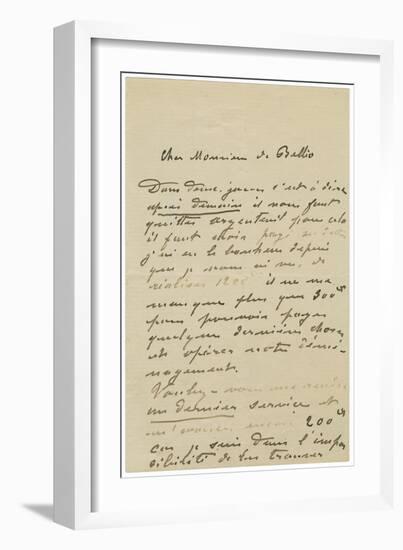 Cher Monsieur de Bellio
Dans deux jours c'est à dire
après demain il nous faut
quitter Argenteuil pour cela
il faut avoir payé ses dettes
j'ai eu le bonheur depuis
que je vous ai vu, de
réaliser 1200 il ne me
manque plus que 300 frs
pour pouvoir payer
quelques dernières choses
et opérer notre démé-
nagement.
Voulez-vous me rendre
un dernier service et
m'avancer encore 200 frs
car je suis dans l'impos
sibilité de les trouver